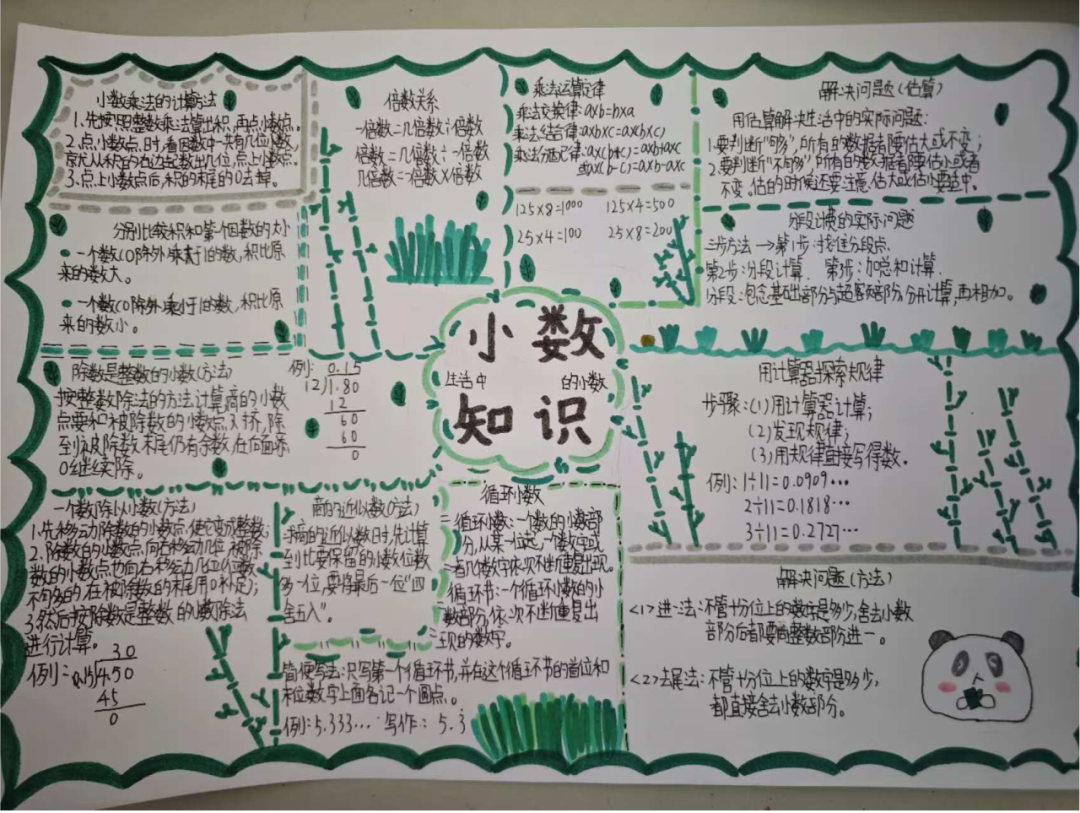 小数乘法的计算方法
1.先按照整数乘法算出积,再点小数点。
2.点小数点时,看因数中一共有几位小数,
就从积的右边起数出几位,点上小数点。
3.点上小数点后,积的末尾的0去掉。
分别比较积和第一个因数的大小
一个数(0除外)乘大于1的数,积比原
来的数大。
一个数(0除外)乘小于1的数,积比原
来的数小。
倍数关系
一倍数=几倍数÷倍数
倍数=几倍数÷一倍数
几倍数=一倍数×倍数
乘法运算定律
乘法交换律:a×b=b×a
乘法结合律:a×b×c=a×(b×c)
乘法分配律:a×(b+c)=a×b+a×c
或a×(b-c)=a×b-a×c
125×8=1000 125×4=500
25×4=100 25×8=200
解决问题(估算)
用估算解决生活中的实际问题:
1.要判断“够”,所有的数据都要估大或不变;
2.要判断“不够”,所有的数据都要估小或者
不变,估的时候还要注意,估大或估小要适中。
分段计费的实际问题
三步方法→第1步:找住分段点.
第2步:分段计算. 第3步:加总和计算.
分段:包含基础部分与超客部分,分开计算,再相加。
小数
生活中 的小数
知识
除数是整数的小数(方法)
按整数除法的方法计算,商的小数
点要和被除数的小数点对挤,除
到被除数末尾仍有余数,在后面添
0继续除。
例: 0.15
12√1.80
12
60
60
0
用计算器探索规律
步骤:(1)用计算器计算;
(2)发现规律;
(3)用规律直接写得数。
例:1÷11=0.0909…
2÷11=0.1818…
3÷11=0.2727…
一个数除以小数(方法)
1.先移动除数的小数点,使它变成整数;
2.除数的小数点向右移动几位,被除
数的小数点也向右移动几位(位数
不够的,在被除数的末尾用0补足);
3.然后按除数是整数的小数除法
进行计算。
30
例=0.15√4.50
45
0
商的近似数(方法)
求商的近似数时,先计算
到比要保留的小数位数
多一位,要将最后一位“四
舍五入”。
循环小数
循环小数:一个数的小数部
分,从某一位起,一个数字或
者几个数字依次不断重复出现。
循环节:一个循环小数的小
数部分,依次不断重复出
现的数字。
简便写法:只写第一个循环节,并在这个循环节的首位和
末位数字上面各记一个圆点。
例:5.333… 写作:5.3̇
解决问题(方法)
<1>进一法:不管十分位上的数字是多少,舍去小数
部分后都要向整数部分进一。
<2>去尾法:不管十分位上的数字是多少,
都直接舍去小数部分。